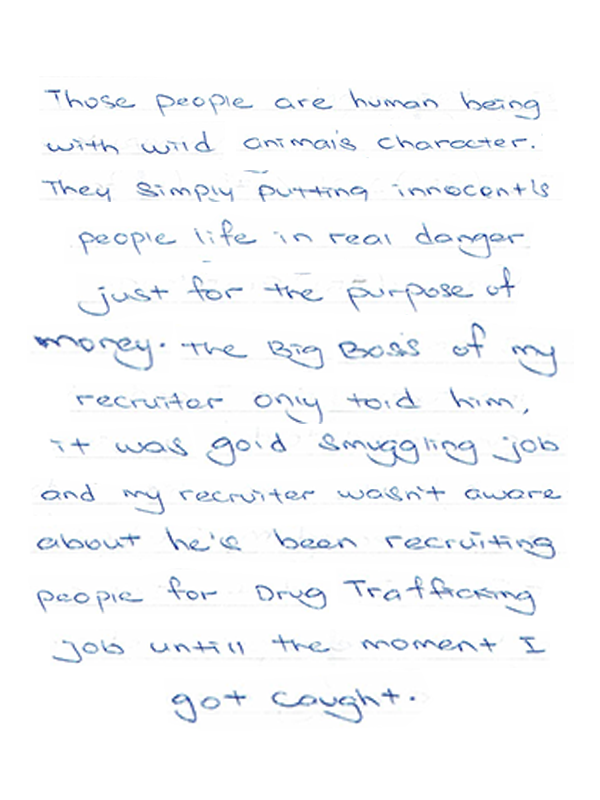 Those people are human being
with wild animals character.
They simply putting innocent's
people life in real danger
just for the purpose of
money. the Big Boss of my
recruiter only told him,
it was gold smuggling job
and my recruiter wasn't aware
about he's been recruiting
people for Drug Trafficking
job untill the moment I
got caught.